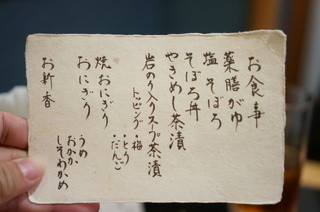 お食事
薬膳がゆ
塩そぼろ
そぼろ丼
やきめし茶漬
岩のり入りスープ茶漬
トッピング・梅
・とり
・だんご
焼おにぎり
おにぎり
うめ
おかか
しそわかめ
お新香